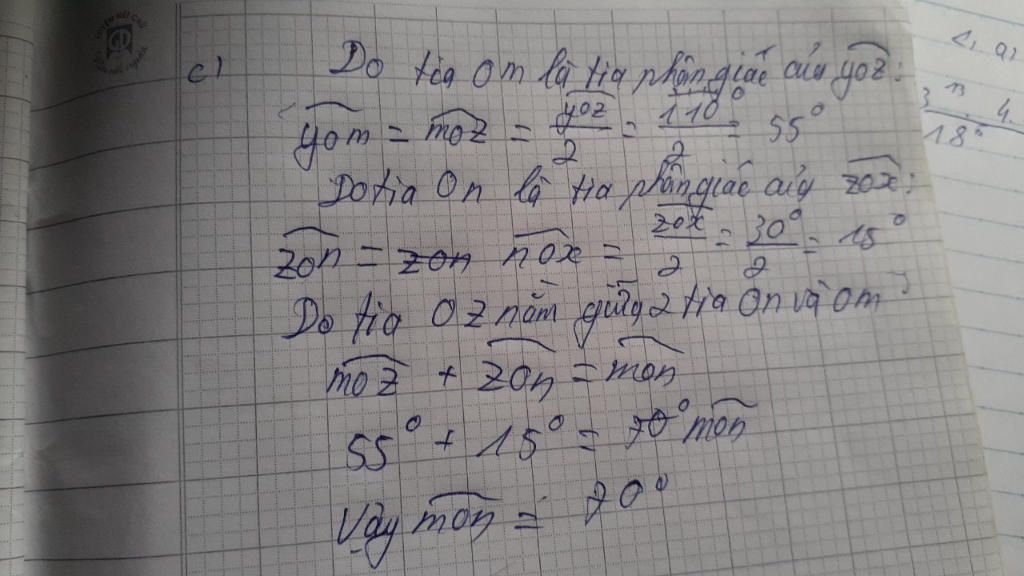 c) Do tia Om là tia phân giác của yoz:
yom = moz = yoz/2 = 110°/2 = 55°
Do tia On là tia phân giác của zox:
zon = zon nox = zox/2 = 30°/2 = 15°
Do tia Oz nằm giữa 2 tia On và Om
moz + zon = mon
55° + 15° = 70° mon
Vậy mon = 70°